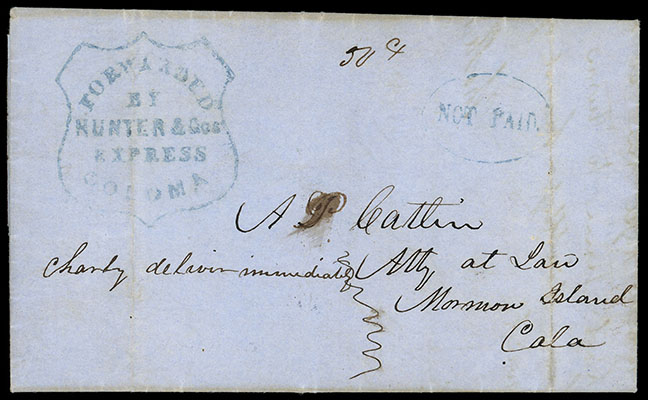 50¢
FORWARDED
BY
HUNTER & Cos
EXPRESS
COLOMA
NOT PAID.
A P Catlin
Charly deliver immediately
Atty at Law
Mormon Island
Cala